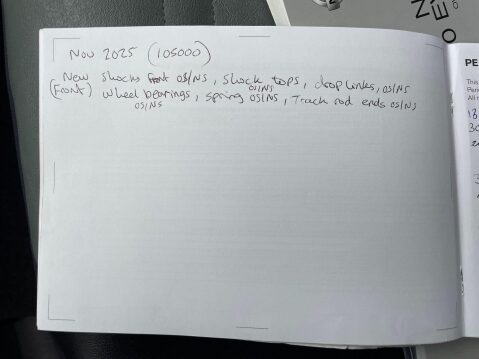 Nov 2025 (105000)
New shocks OS/NS, shock tops OS/NS, drop links, OS/NS
(Front) wheel bearings OS/NS, spring OS/NS, Track rod ends OS/NS
NZ
EO
PE
This
All
18
30